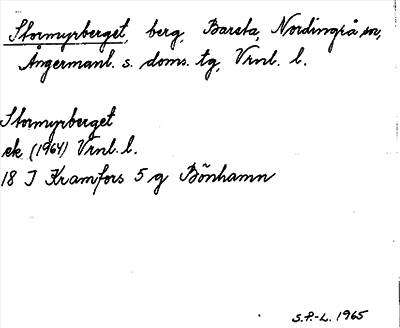 Stormyrberget, berg, Barsta, Nordingrå sn,
Ångermanl. s. doms. tg, Vrnl. l.
Stormyrberget
ek (1964) Vrnl. l.
18 I Kramfors 5 g Bönhamn
S.P.-L. 1965